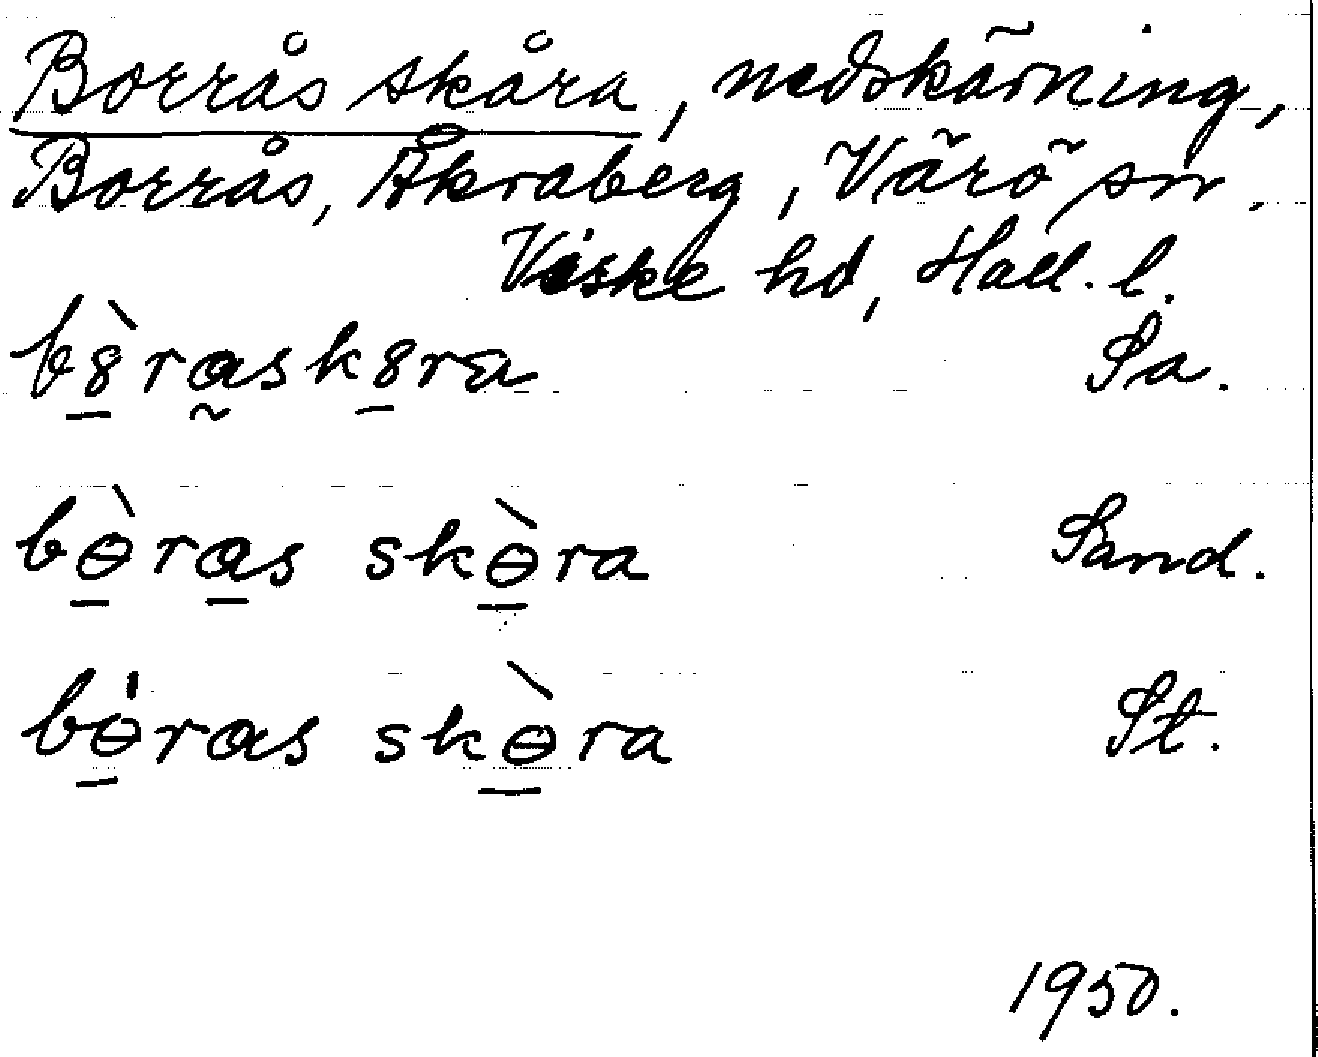 Borrås skåra, nedskärning,
Borrås, Åkraberg, Värö sn.
Viske hd, Hall. l.
bȣ̱̀ra̰skȣ̱ra Sa.
bɵ̱̀ra̱s skɵ̱̀ra Sand.
bɵ̱́ras skɵ̱̀ra St.
1950.